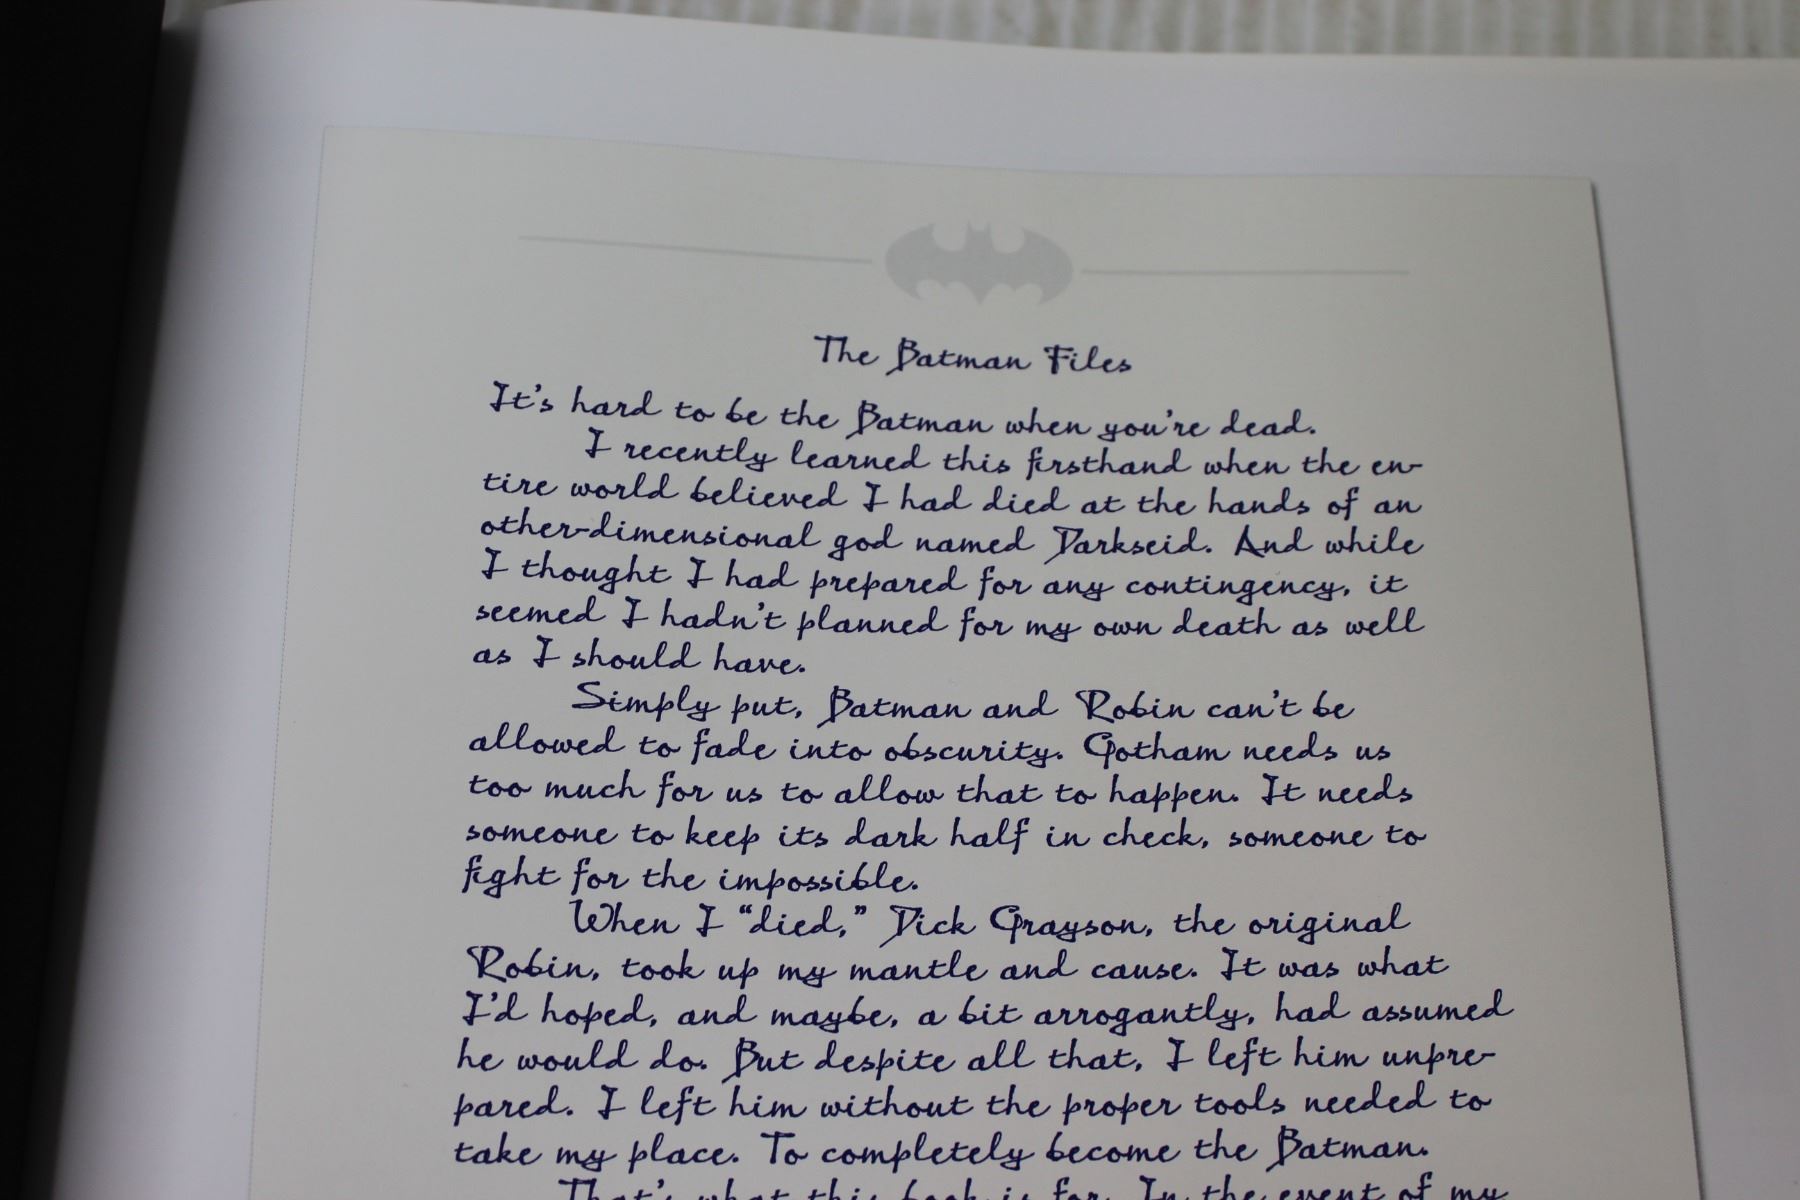 The Batman Files
It's hard to be the Batman when you're dead.
I recently learned this firsthand when the en-
tire world believed I had died at the hands of an
other-dimensional god named Darkseid. And while
I thought I had prepared for any contingency, it
seemed I hadn't planned for my own death as well
as I should have.
Simply put, Batman and Robin can't be
allowed to fade into obscurity. Gotham needs us
too much for us to allow that to happen. It needs
someone to keep its dark half in check, someone to
fight for the impossible.
When I “died,” Dick Grayson, the original
Robin, took up my mantle and cause. It was what
I'd hoped, and maybe, a bit arrogantly, had assumed
he would do. But despite all that, I left him unpre-
pared. I left him without the proper tools needed to
take my place. To completely become the Batman.
That's what this book is for. In the event of my